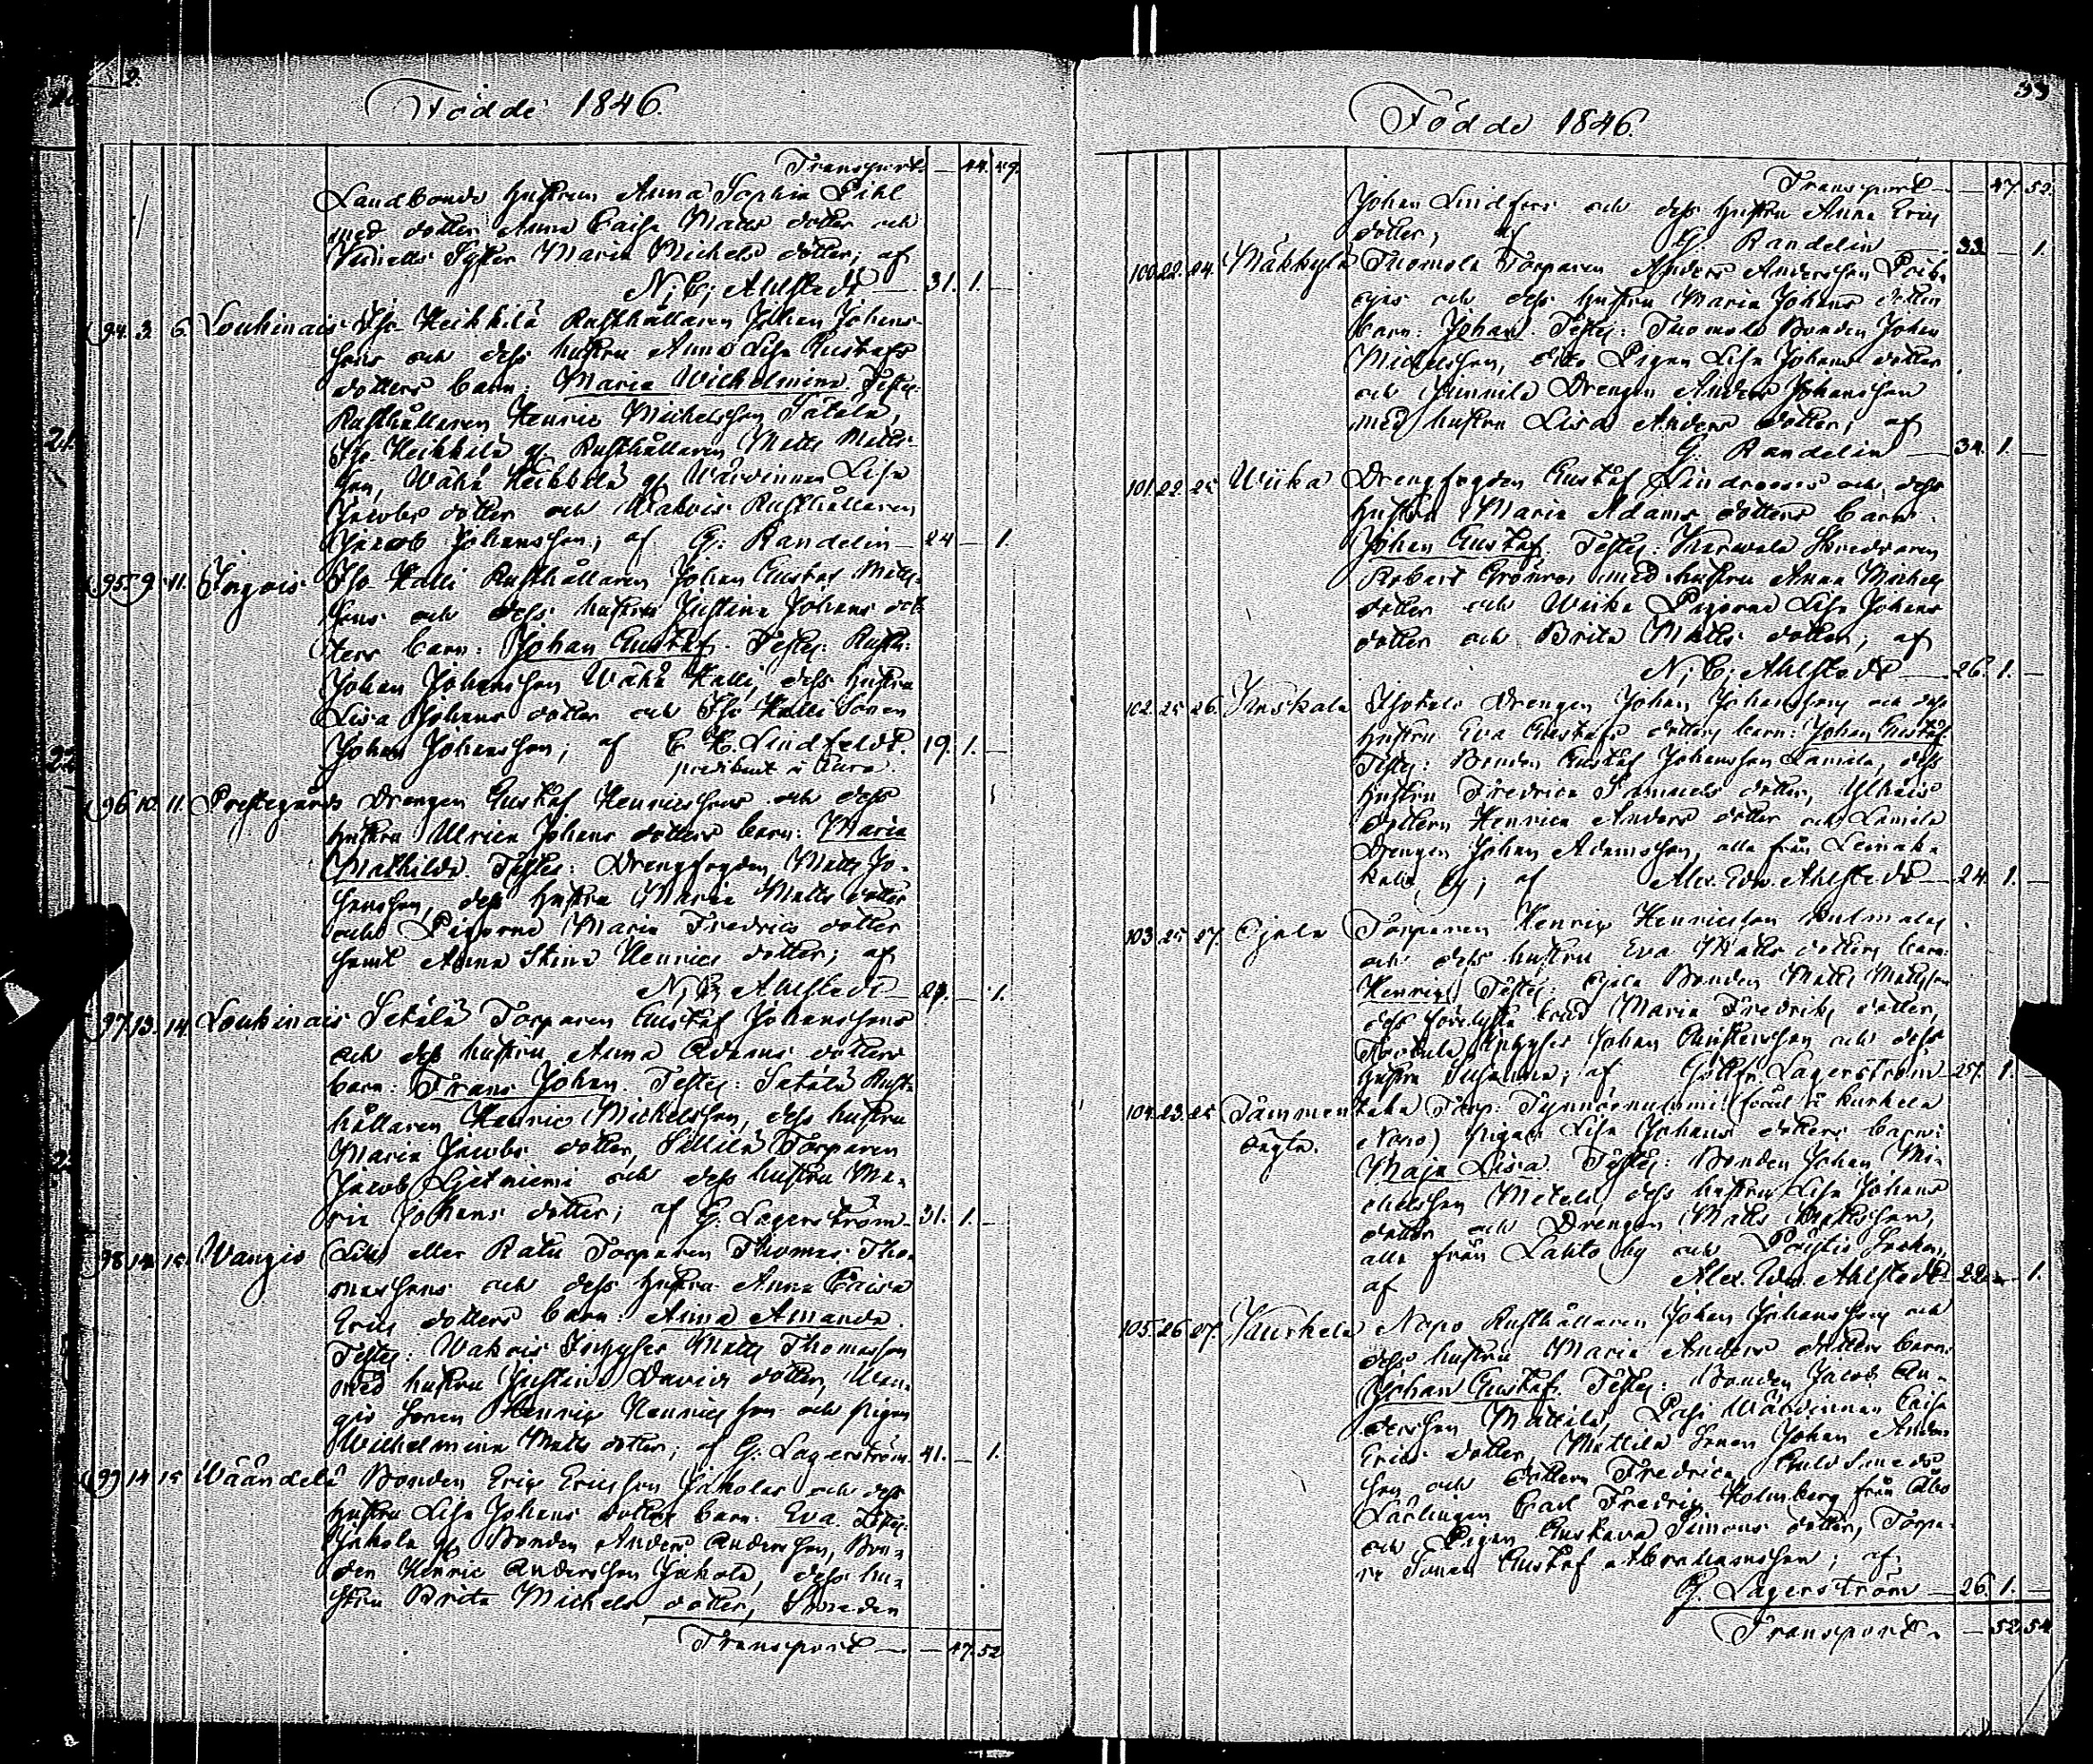 2.
Födde 1846.
Transport — 44. 49.
Landbonds hustrun Anna Sophia Pihl
med dotter Anna Caisa Matts dotter och
Syster Maria Michels dotter; af
N; C; Ahlstedt — 31. 1. —
94. 3. 6. Loukinais Iso Heikkilä Rusthållaren Johan Johans-
sons och dess hustru Anna Lisa Gustafs
dotters barn: Maria Wilhelmina. Testes:
Rusthållaren Henric Michelsson Sätälä,
Iso Heikkilä gl Rusthållaren Matts Matts-
son, Wähä Heikkilä gl Wärdinnan Lisa
Jacobs dotter och Wakois Rusthållaren
Jacob Johansson; af G: Randelin — 24 — 1.
95. 9. 11. Ingois Iso Kalli Rusthållaren Johan Gustaf Matts-
sons och dess hustru Justina Johans dot-
ters barn: Johan Gustaf. Testes: Rusth:
Johan Johansson Wähä Kalli, dess hustru
Lisa Johans dotter och Iso Kalli Sonen
Johan Johansson; af C. H. Lindfeldt. 19. 1. —
predikant i Aura.
96. 10. 11. Prestegårds Drengen Gustaf Henricssons och dess
hustru Ulrica Johans dotters barn: Maria
Mathilda. Testes: Drengfogden Matts Jo-
hansson, dess hustru Maria Matts dotter
och Pigorna Maria Fredrics dotter
samt Anna Stina Henrics dotter; af
N; C; Ahlstedt — 27. — 1.
97. 13. 14. Loukinais Sätälä Torparen Gustaf Johanssons
och dess hustru Anna Adams dotters
barn: Frans Johan. Testes: Sätälä Rust-
hållaren Henric Michelsson, dess hustru
Maria Jacobs dotter, Sillilä Torparen
Jacob Ljetniemi och dess hustru Ma-
ria Johans dotter; af G. Lagerström — 31. 1. —
98. 14. 15. Wangio eller Ratu Torparen Thomas Tho-
massons och dess hustru Anna Caisa
Erics dotters barn: Anna Amanda.
Testes: Wakois Inhyses Matts Thomasson
med hustru Justina Davids dotter, Wan-
gio Sonen Henric Henricsson och pigan
Wilhelmina Matts dotter; af G. Lagerström. 41. — 1.
99. 14. 15. Wääntelä Bonden Eric Ericsson Jakolas och dess
hustru Lisa Johans dotters barn: Eva. Testes:
Jakola gl Bonden Anders Andersson, Bon-
den Henric Andersson Jakola, dess hu-
stru Brita Michels dotter, Smeden
Transport — — 47. 52
33
Födde 1846.
Transport — — 47. 52.
Johan Lindfors och dess hustru Anna Erics
dotter; af G. Randelin — 33. — 1.
100. 22. 24. Mäkkylä Tuomola Torparen Anders Andersson
och dess hustru Maria Johans dotters
barn: Johan. Testes: Tuomola Bonden Johan
Michelsson, dito Pigan Lisa Johans dotter
och Junnila Drengen Anders Johansson
med hustru Lisa Anders dotter; af
G. Randelin — 34. 1. —
101. 22. 25 Wiika Drengfogden Gustaf Lindroos och dess
hustru Maria Adams dotters barn:
Johan Gustaf. Testes: Skredaren
Robert Grönroos med hustru Anna Michels
dotter och Wiika Pigorna Lisa Johans
dotter och Brita Matts dotter; af
N; C; Ahlstedt — 26. 1. —
102. 25. 26. Juskala Isotalo Drengen Johan Johanssons och dess
hustru Eva Gustafs dotters barn: Johan Gustaf
Testes: Bonden Gustaf Johansson Lamila, dess
hustru Fredrica Samuels dotter,
dottern Henrica Anders dotter och Lamila
Drengen Johan Adamsson, alla från Leinaka
by; af Alex. Edv. Ahlstedt — 24. 1. —
103. 25. 27. Ojala Torparen Henric Henricsson
och dess hustru Eva Matts dotters barn:
Henric. Testes: Ojala Bonden Matts Mattsson
dess brud Maria Fredriks dotter,
Inhyses Johan Christersson och dess
hustru Susanna; af Gottfr. Lagerström — 27. 1. —
104. 23. 25 Tammentaka Torp:
Oägta. Napo) pigans Lisa Johans dotters barn:
Maja Lisa. Testes: Bonden Johan Mi-
chelsson, dess hustru Lisa Johans
dotter och Drengen Matts Mattsson,
alla från Lahto by och
af Alex. Edv. Ahlstedt — 22. — 1.
105. 26. 27. Kurkela Napo Rusthållaren Johan Johanssons och
dess hustru Maria Anders dotters barn:
Johan Gustaf. Testes: Bonden Jacob An-
dersson Mattila, Pasi Wärdinnan Caisa
Erics dotter, Mattila Sonen Johan Anders
son och dottern Fredrica, Guldsmeds
Lärlingen Carl Fredric Holmberg från Åbo
och Pigan Gustava Simons dotter, Torpa-
re Sonen Gustaf Abrahamsson; af
G. Lagerström — 26. 1. —
Transport. — 52. 54